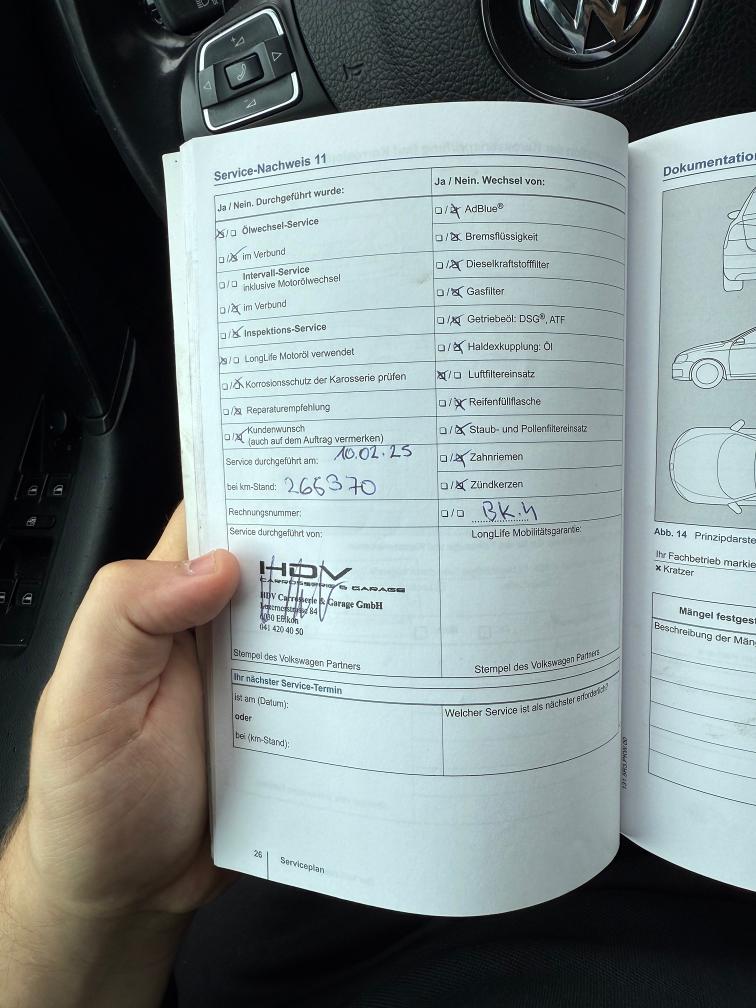 Service-Nachweis 11
Ja / Nein. Durchgeführt wurde:
Ölwechsel-Service
im Verbund
Intervall-Service
inklusive Motorölwechsel
im Verbund
Inspektions-Service
LongLife Motoröl verwendet
Korrosionsschutz der Karosserie prüfen
Reparaturempfehlung
Kundenwunsch
(auch auf dem Auftrag vermerken)
Service durchgeführt am: 10.02.25
bei km-Stand: 266370
Rechnungsnummer:
Service durchgeführt von:
HDV
CARROSSERIE & GARAGE
HDV Carrosserie & Garage GmbH
84
6030 Ebikon
041 420 40 50
Stempel des Volkswagen Partners
Ja / Nein. Wechsel von:
AdBlue®
Bremsflüssigkeit
Dieselkraftstofffilter
Gasfilter
Getriebeöl: DSG®, ATF
Haldexkupplung: Öl
Luftfiltereinsatz
Reifenfüllflasche
Staub- und Pollenfiltereinsatz
Zahnriemen
Zündkerzen
BK.4
LongLife Mobilitätsgarantie:
Stempel des Volkswagen Partners
Ihr nächster Service-Termin
ist am (Datum):
oder
bei (km-Stand):
Welcher Service ist als nächster erforderlich?
26
Serviceplan
Dokumentation
Abb. 14 Prinzipdarste
Ihr Fachbetrieb markie
× Kratzer
Mängel festgest
Beschreibung der Mäng